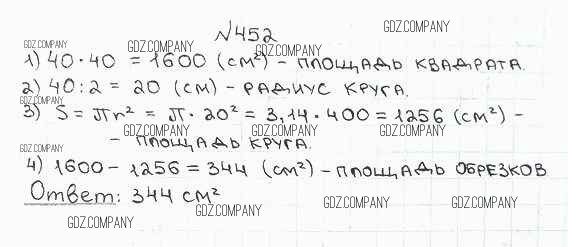 №452
GDZ.COMPANY
GDZ.COMPANY GDZ.COMPANY GDZ.COMPANY
1) 40 · 40 = 1600 (см²) - площадь квадрата.
2) 40 : 2 = 20 (см) - радиус круга.
GDZ.COMPANY
3) S = πr² = π · 20² = 3,14 · 400 = 1256 (см²) -
GDZ.COMPANY GDZ.COMPANY GDZ.COMPANY
- площадь круга.
GDZ.COMPANY
4) 1600 - 1256 = 344 (см²) - площадь обрезков
Ответ: 344 см²
GDZ.COMPANY GDZ.COMPANY GDZ.COMPANY
GDZ.COMPANY